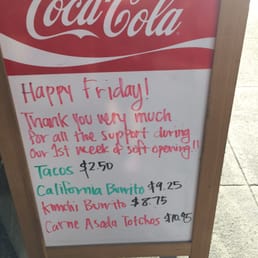 Coca-Cola
Happy Friday!
Thank you very much
for all the support during
our 1st week of soft opening!!
Tacos $2.50
California Burrito $9.25
Kimchi Burrito $8.75
Carne Asada Totchos $10.95